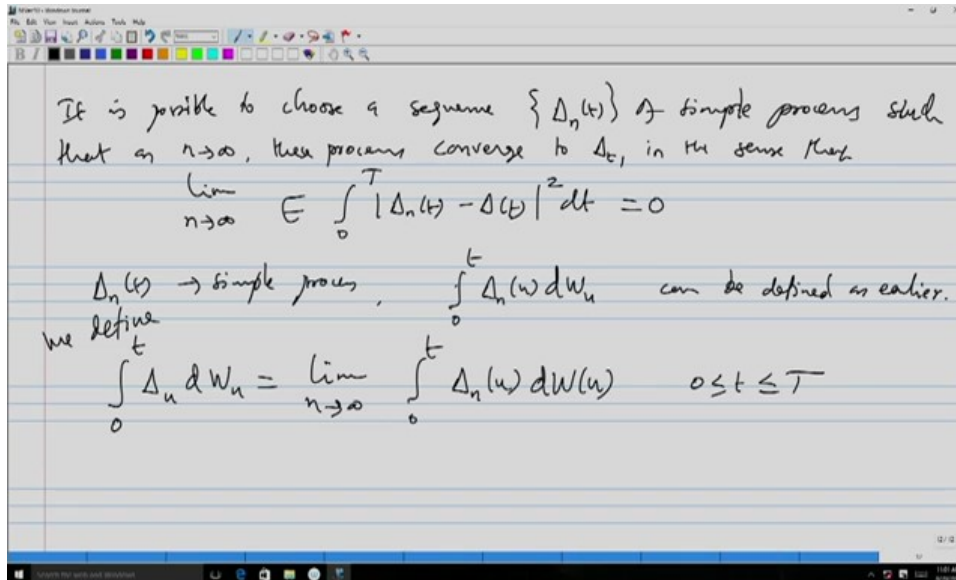 File Edit View Insert Actions Tools Help
B I
It is possible to choose a sequence {Δₙ(t)} of simple process such
that as n→∞, these process converge to Δₜ, in the sense that
lim n→∞ E ∫₀ᵀ |Δₙ(t) - Δ(t)|² dt = 0
Δₙ(t) → simple process, ∫₀ᵗ Δₙ(u) dWᵤ can be defined as earlier.
we define
∫₀ᵗ Δᵤ dWᵤ = lim n→∞ ∫₀ᵗ Δₙ(u) dW(u) 0≤t≤T
Search the web and Windows